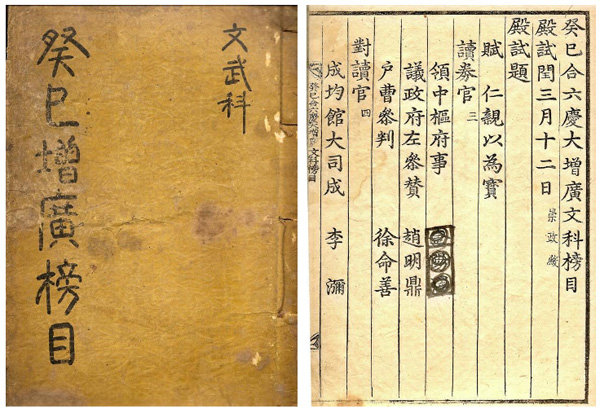 文武科
癸巳增廣榜目
癸巳合六慶大增廣文科榜目
殿試閏三月十二日 崇政殿
殿試題
賦 仁親以為寶
讀券官 三
領中樞府事
議政府左叅賛 趙明鼎
户曹叅判 徐命善
對讀官 四
成均館大司成 李瀰
文科榜目